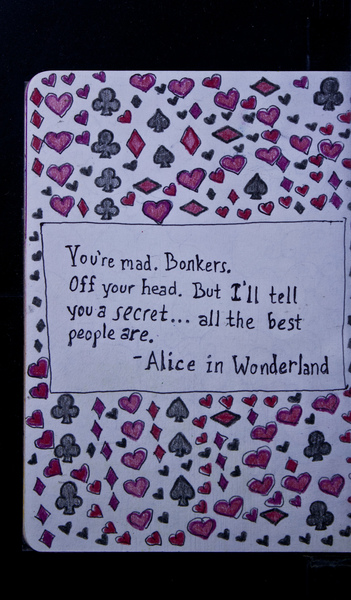 You're mad. Bonkers.
Off your head. But I'll tell
you a secret... all the best
people are.
-Alice in Wonderland